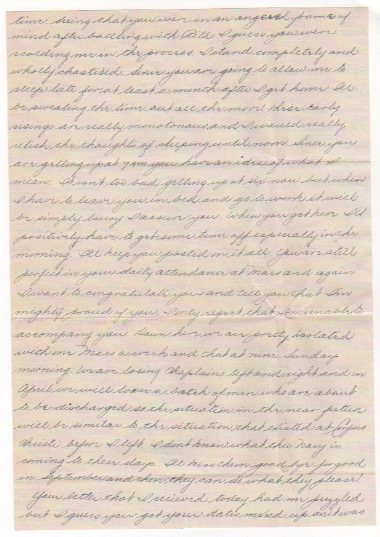 time. Seeing that you were in an angered frame of
mind after battling with I guess you were
scolding me in the process. I stand completely and
wholly chastised. Since you are going to allow me to
sleep late for at least a month after I get home I'll
be sweating the time out all the more. These early
risings are really monotonous and I would really
relish the thoughts of sleeping until noon. Since you
are getting up at 7 AM you have an idea of what I
mean. It isn't too bad getting up at six now but when
I have to leave you in bed and go to work it will
be simply lousy I assure you. When you get here I'll
positively have to get some time off especially in the
morning. I'll keep you posted on it all. You are still
perfect in your daily attendance at Mass and again
I want to congratulate you and tell you that I'm
mighty proud of you. I only regret that I'm unable to
accompany you. Down here we are pretty isolated
with one Mass a week and that at nine Sunday
morning. We are losing Chaplains left and right and in
April we will lose a batch of men who are about
to be discharged so the situation in the near future
will be similar to the situation that existed at Corpus
Christi before I left. I don't know what this Navy is
coming to these days. I'll kiss them good bye for good
in September and then they can do what they please!
Your letter that I received today had me puzzled
but I guess you got your dates mixed up as it was